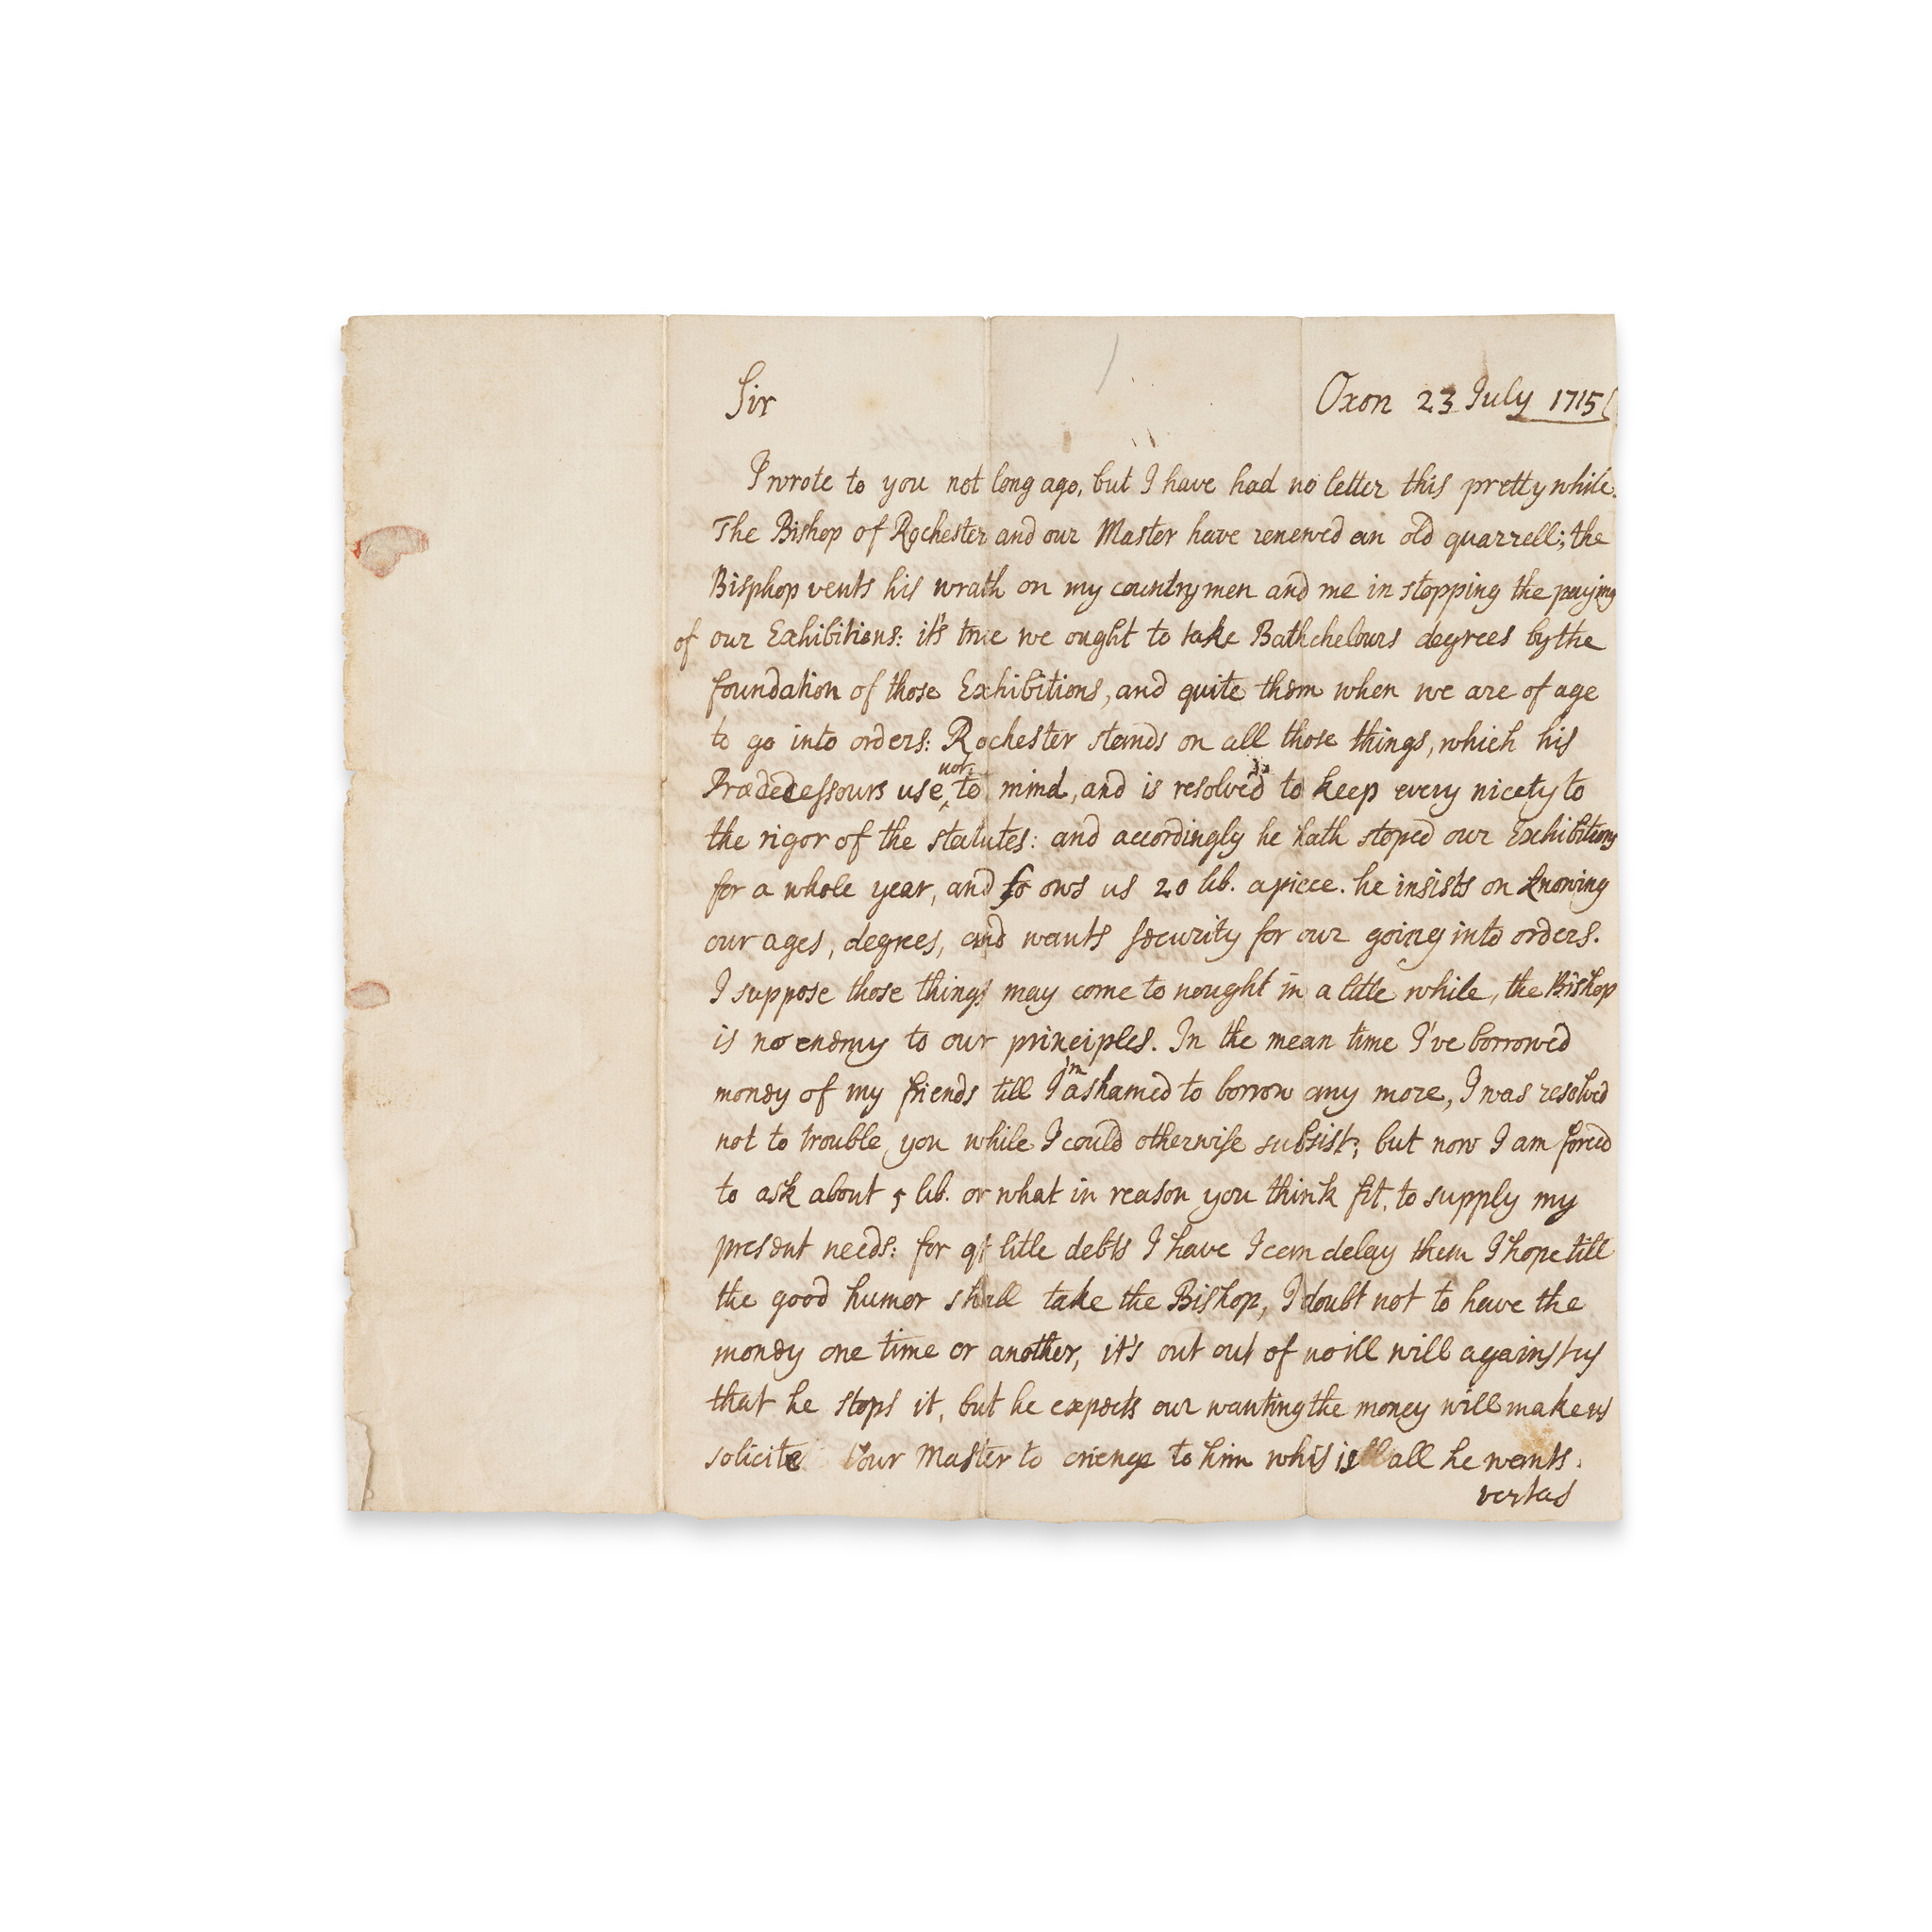 Sir
Oxon 23 July 1715
I wrote to you not long ago, but I have had no letter this pretty while.
The Bishop of Rochester and our Master have renewed an old quarrell; the
Bisphop vents his wrath on my countrymen and me in stopping the paying
of our Exhibitions: it's true we ought to take Bathchelours degrees by the
foundation of those Exhibitions, and quite them when we are of age
to go into orders: Rochester stands on all those things, which his
Prædecessours use not to mind, and is resolv'd to keep every nicety to
the rigor of the statutes: and accordingly he hath stoped our Exhibitions
for a whole year, and so ows us 20 lib. apiece. he insists on knowing
our ages, degrees, and wants security for our going into orders.
I suppose those things may come to nought in a little while, the Bishop
is no enemy to our principles. In the mean time I've borrow'd
money of my friends till I'm ashamed to borrow any more, I was resolved
not to trouble you while I could otherwise subsist; but now I am forced
to ask about 5 lib. or what in reason you think fit, to supply my
present needs: for litle debts I have I can delay them I hope till
the good humor shall take the Bishop, I doubt not to have the
money one time or another, it's out out of no ill will against us
that he stops it, but he expects our wanting the money will make us
solicite our Master to crienge to him whis is all he wants.